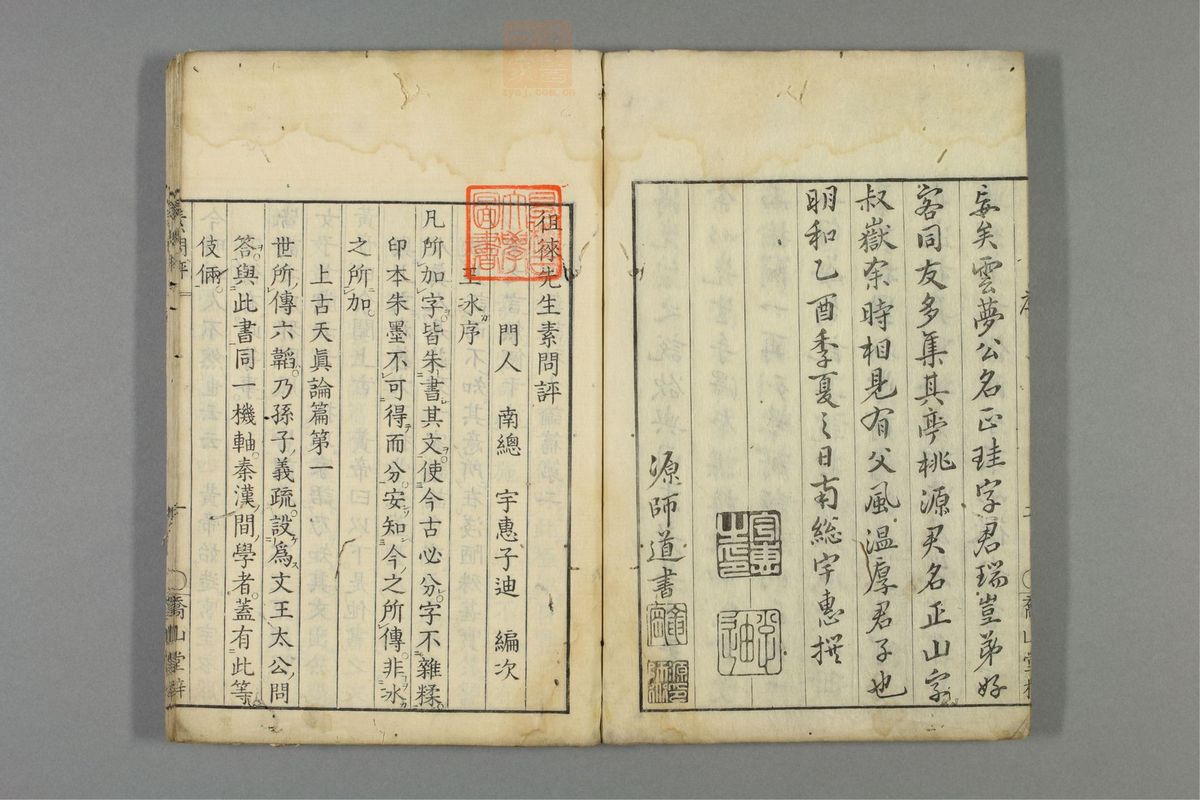 妄矣雲夢公名正珪字君瑞豈弟好
客同友多集其亭桃源君名正山字
叔嶽余時相見有父風温厚君子也
明和乙酉季夏之日南總宇惠撰
源師道書
徂徠先生素問評
門人 南總 宇惠子迪 編次
王氷序
凡所加字皆朱書其文使今古必分字不雜糅
印本朱墨不可得而分安知今之所傳非氷
之所加
上古天眞論篇第一
世所傳六韜乃孫子義疏設爲文王太公問
答與此書同一機軸秦漢間學者蓋有此等
伎倆